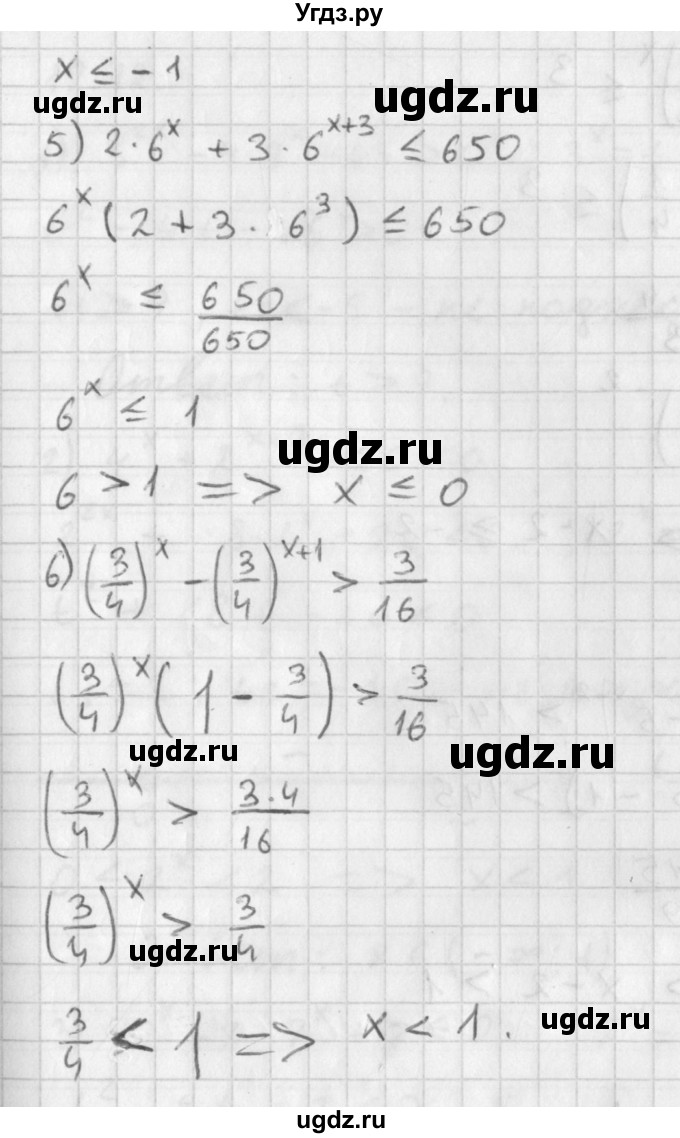 Угдз.ру
x ≤ - 1
ugdz.ru
ugdz.ru
5) 2 · 6^x + 3 · 6^(x+3) ≤ 650
6^x (2 + 3 · 6^3) ≤ 650
6^x ≤ 650/650
6^x ≤ 1
ugdz.ru
6 > 1 => x ≤ 0
6) (3/4)^x - (3/4)^(x+1) > 3/16
(3/4)^x (1 - 3/4) > 3/16
ugdz.ru
ugdz.ru
(3/4)^x > 3·4/16
(3/4)^x > 3/4
ugdz.ru
3/4 < 1 => x < 1.
ugdz.ru
ugdz.ru